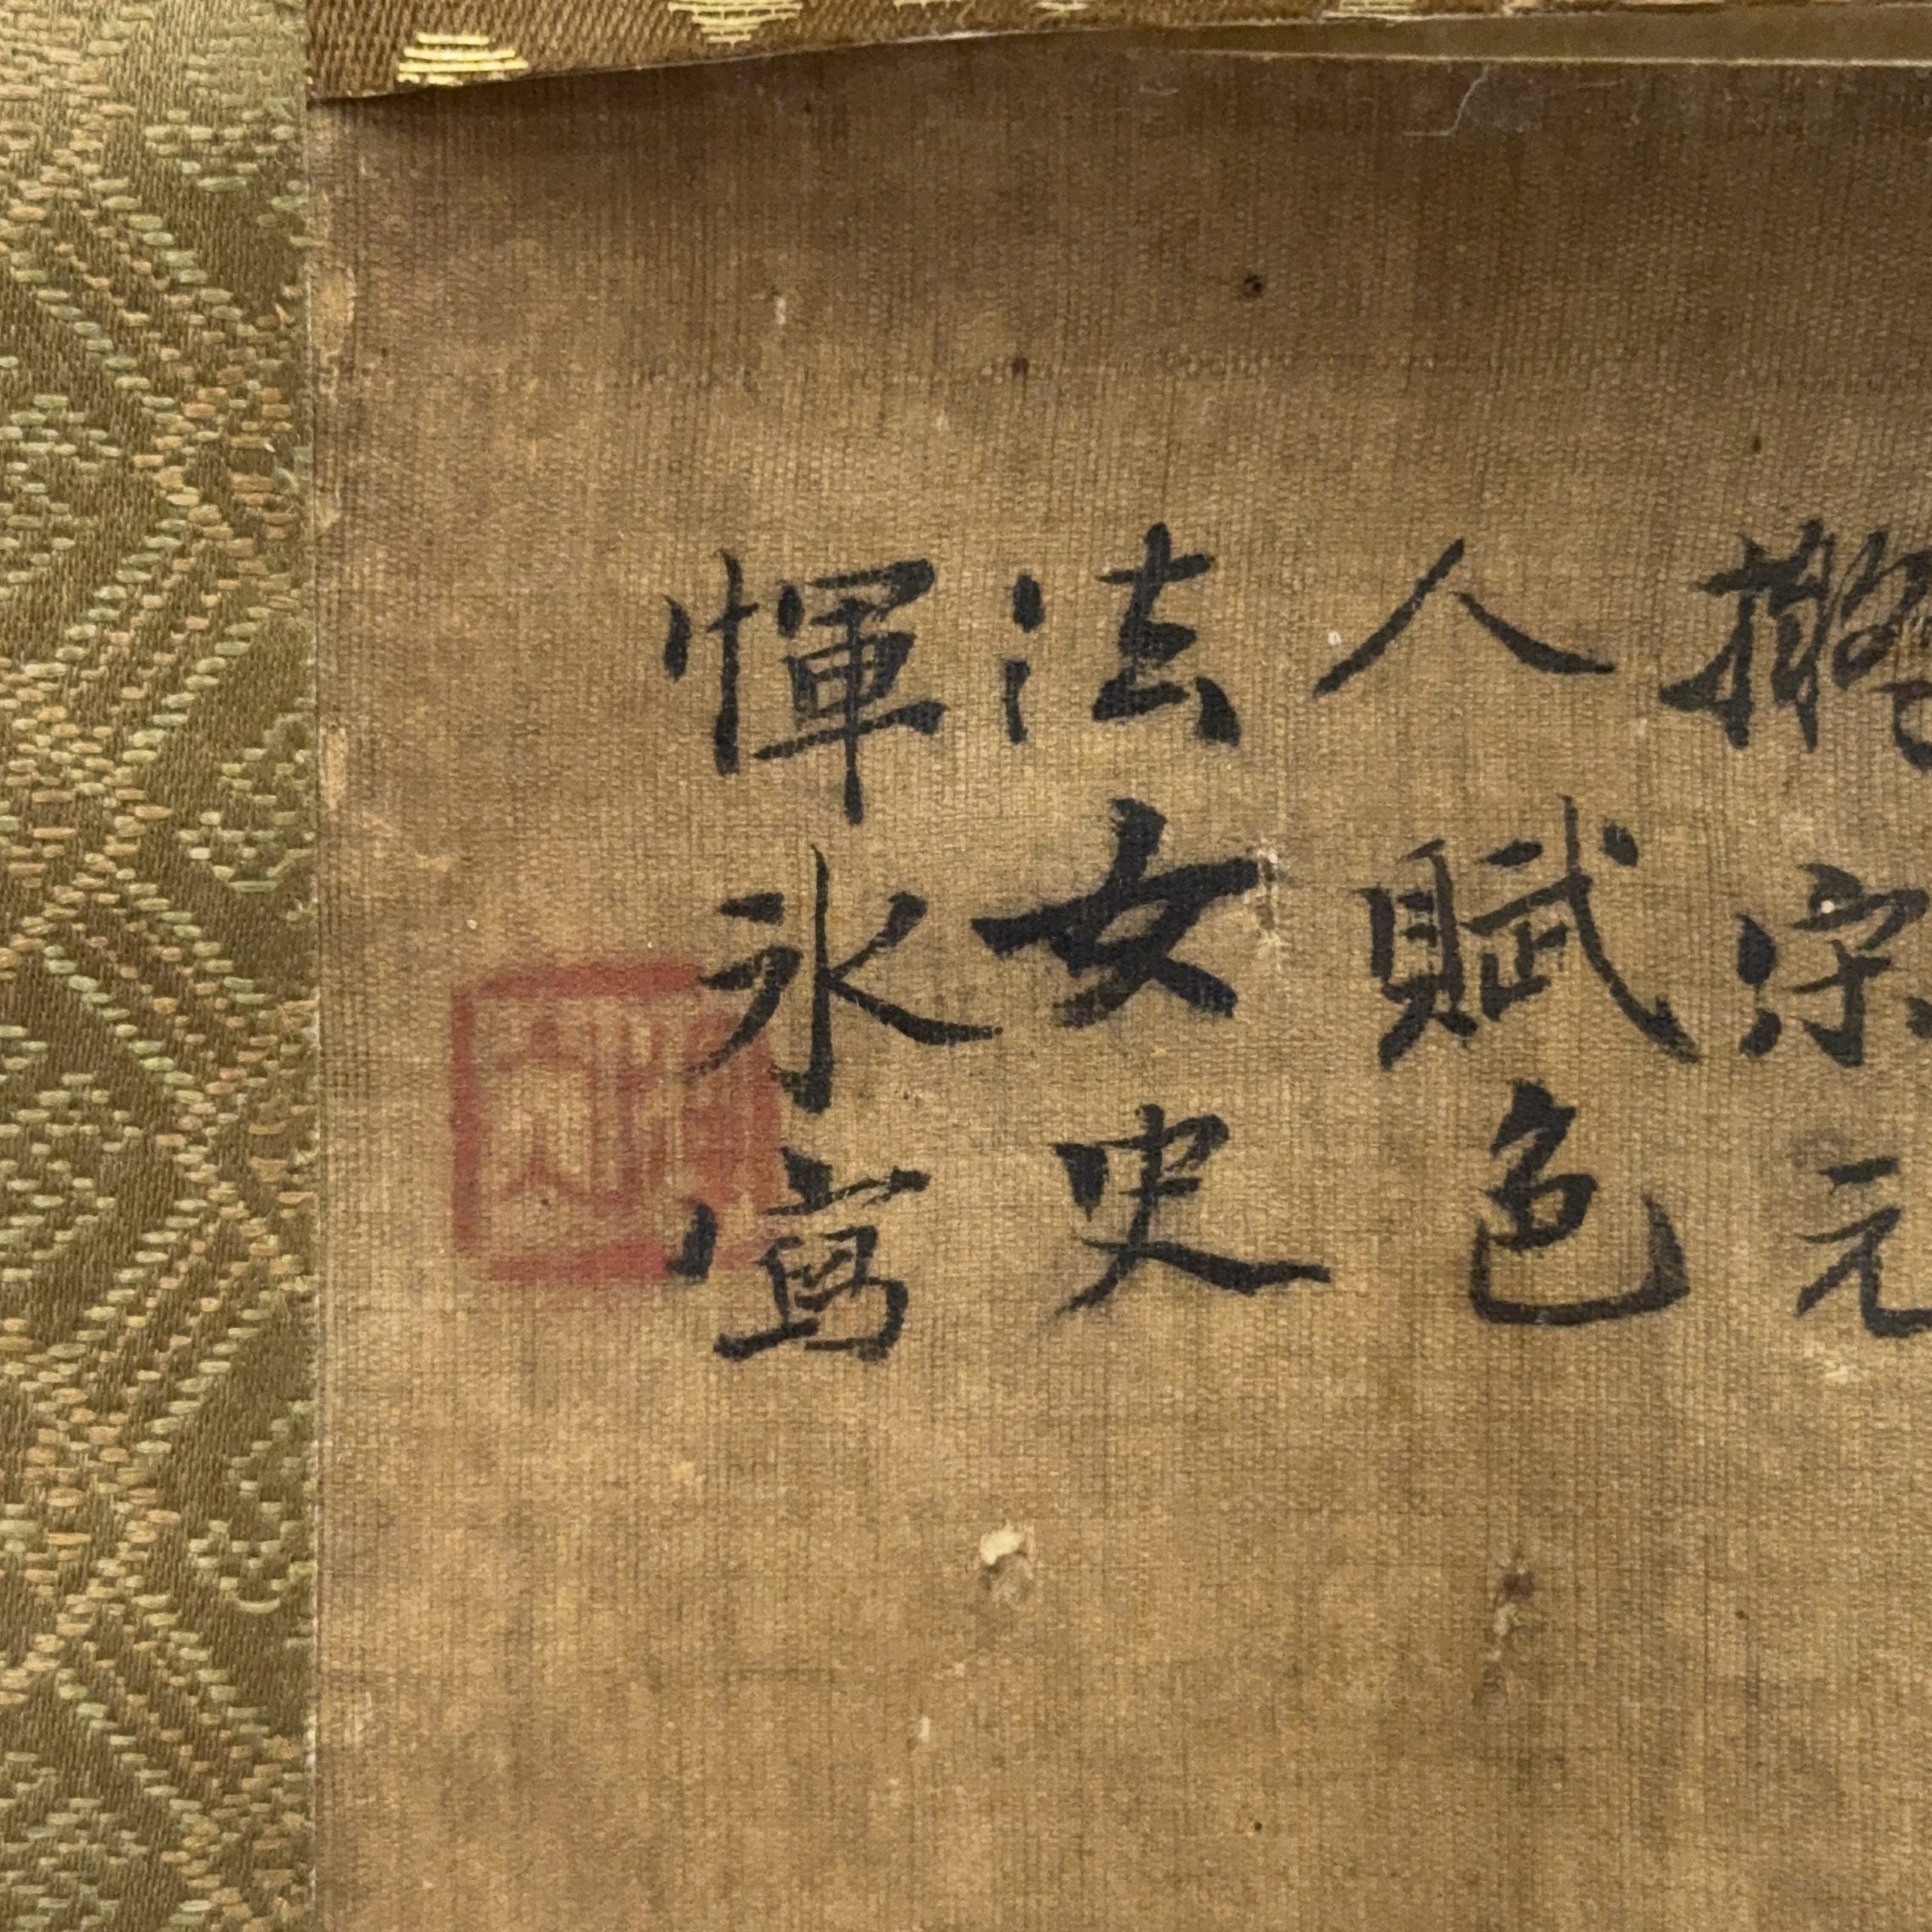 擬宋元
人賦色
法女史
惲氷寫